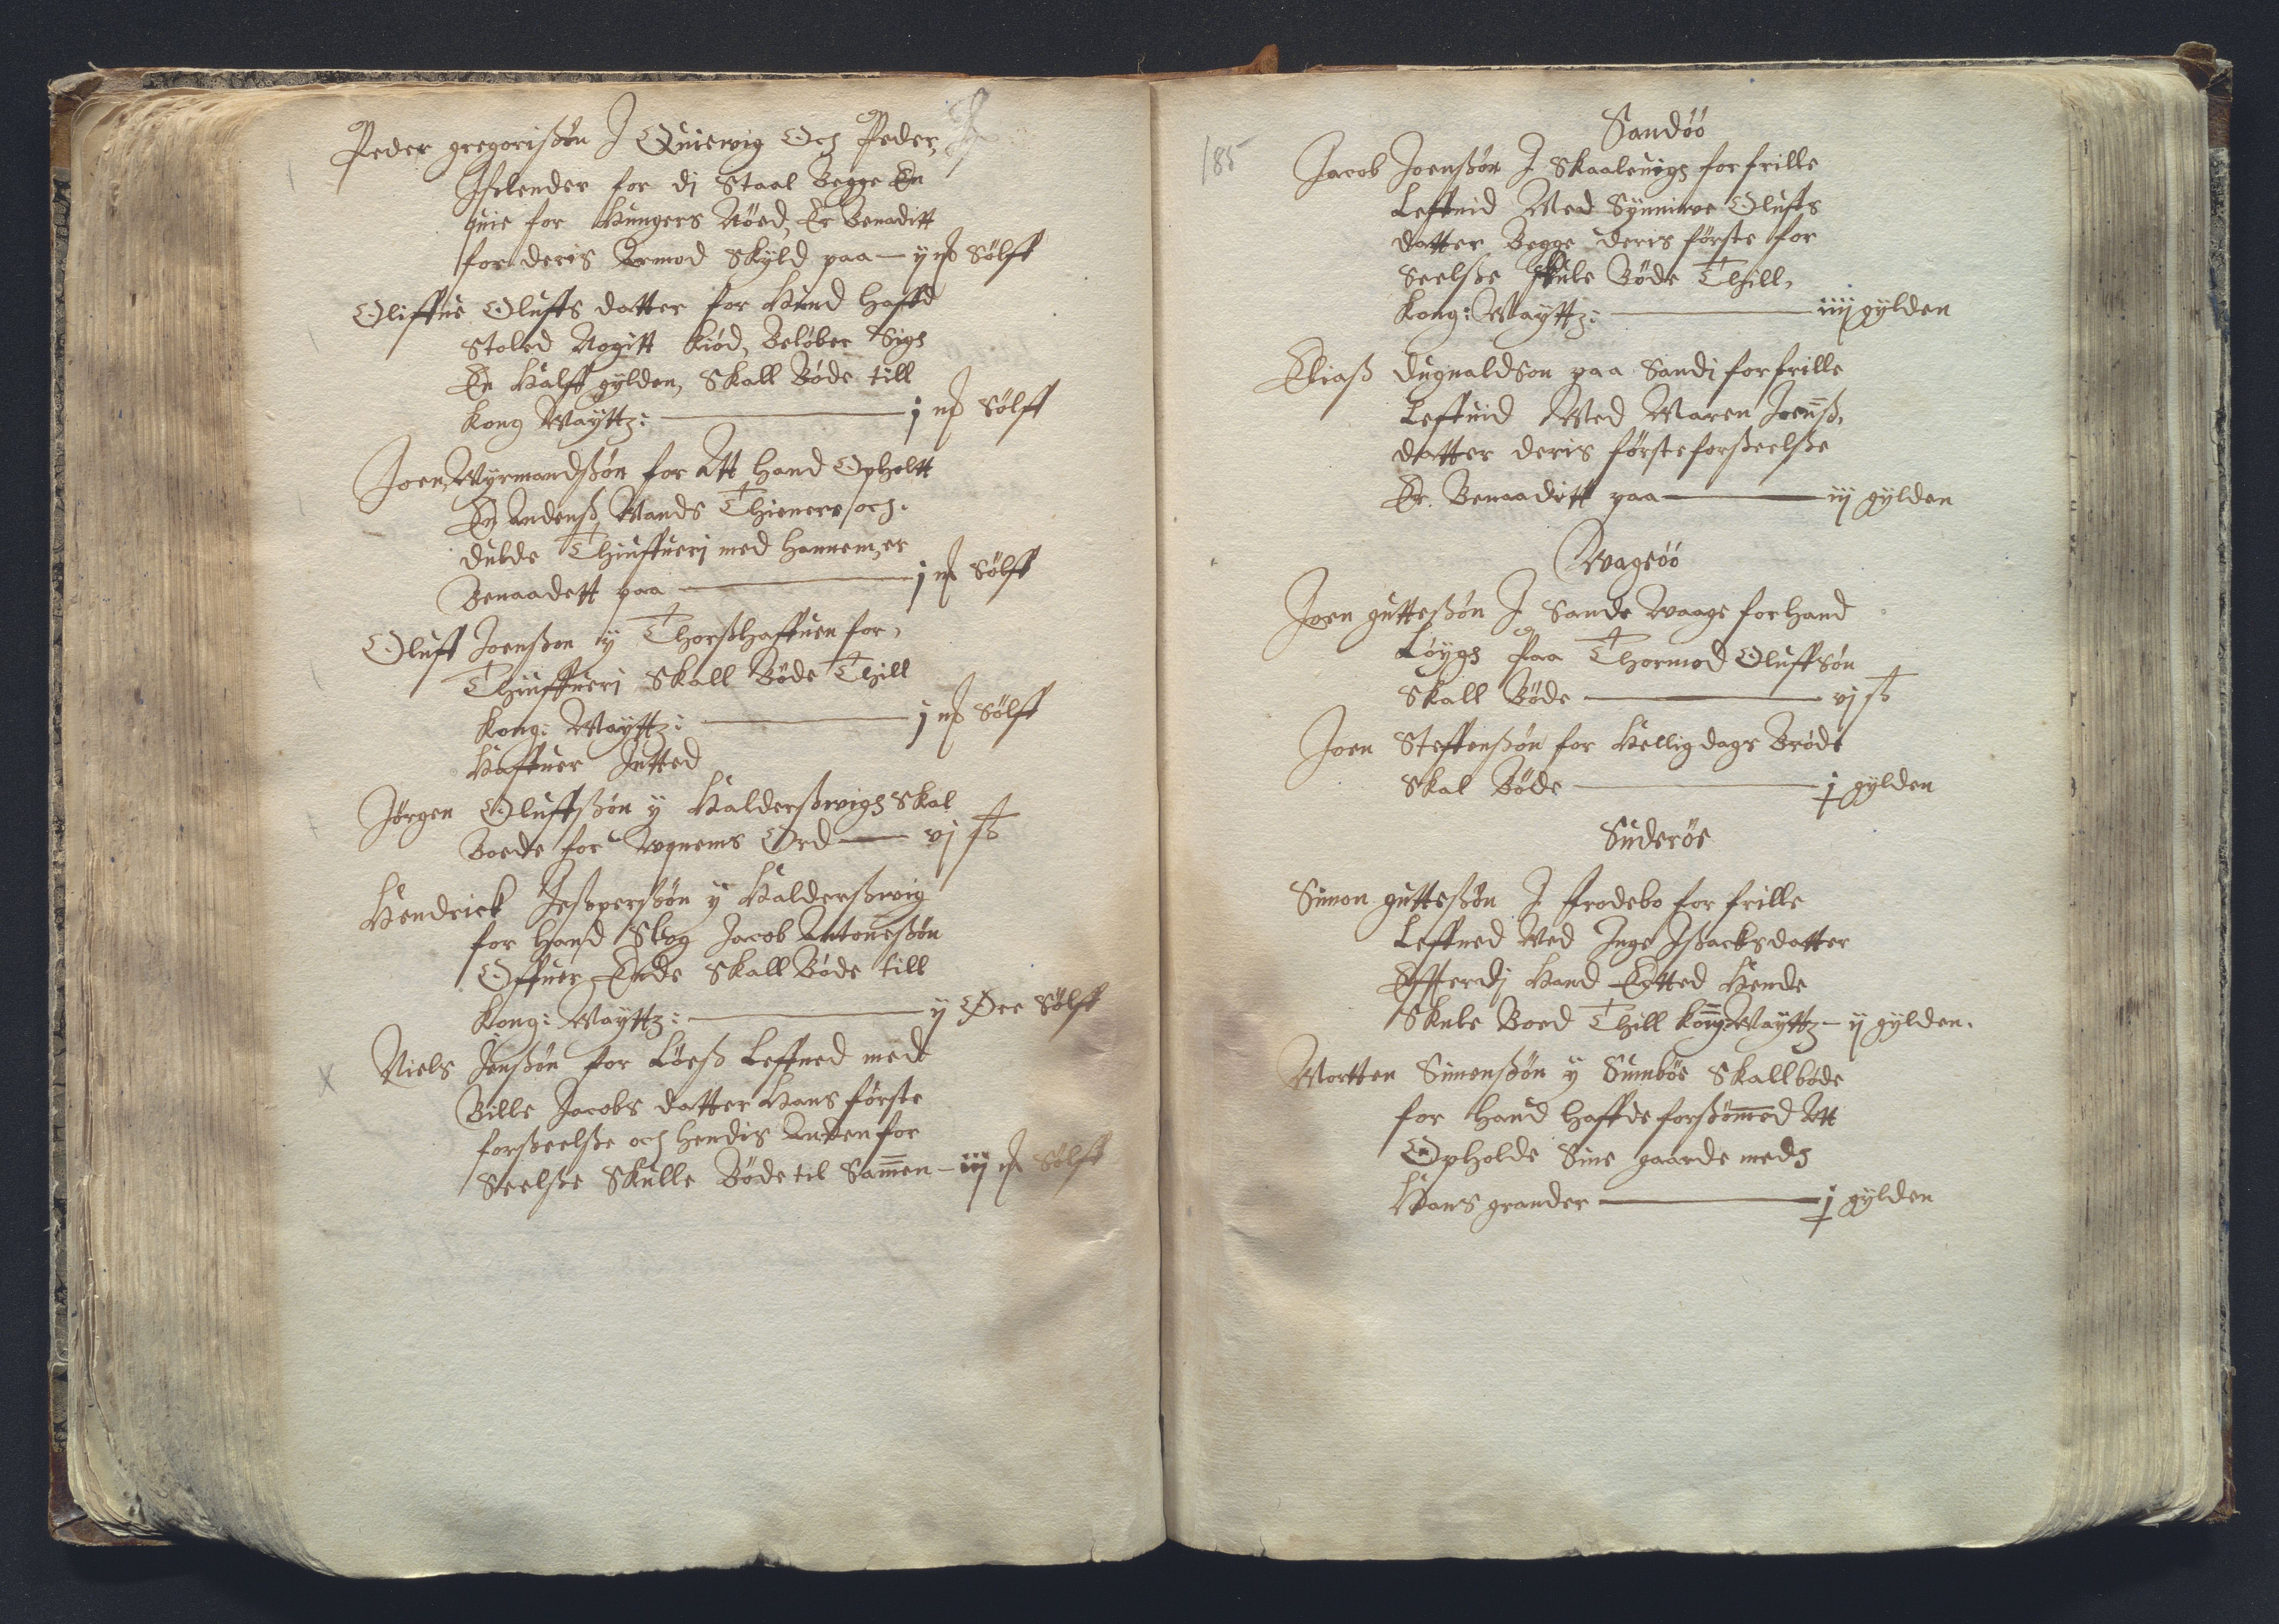 Peder gregorisßøn J Quiewig Och Peder,
Jslender for dj Staal Begge En
quie for Hungers Nöed, Er Benaditt
for deris Armod Skyld paa — ij mk Sølff
Oliffue Olufts datter for Hund haffd
Stoled Nogitt kiød, Beløber Sigh
En Halff gylden, Skall Bøde till
kong Mayttz: — j mk Sølff
Joen Myrmandßøn for Att hand Opholtt
En Andenß Mands Thienere och
dulde Thiuffueri med hannem, er
Benaadett paa — j mk Sølff
Oluff Joenßøn y Thorßhaffuen for,
Thiuffueri Skall Bøde Thill
kong: Mayttz: — j mk Sølff
Haffuer Jntted
Jørgen Oluffßøn y Halderßwigh Skal
Boede for Uqnems Ord — vj sk
Hendrick Jesperßøn y Halderßwig
for hand Slog Jacob Antonesßøn
Offuer Ende Skall Bøde till
kong: Mayttz: — ij Øre Sølff
Niels Jenßøn for Løeß Leffned med
Bille Jacobs datter Hans første
forßeelße och hendis Anden for
Seelße Skulle Bøde til Sammen — iiij mk Sølff
185
Sandöö
Jacob Joenßøn J Skaaleuigh for frille
Leffnid Med Synniwe Olufts
datter Begge deris første for
Seelße Skule Bøde Thill,
kong: Mayttz: — iiij gylden
Eliaß dugnaldSon paa Sandj for frille
Leffnid Med Maren Joenß,
datter deris første forßeelße
Er Benaaditt paa — iij gylden
Wagöö
Joen gutteßøn J Sande Waage for hand
Løygh Paa Thormod OluffSøn
Skall Bøde — vj sk
Joen Steffenßøn for Hellig dags Brøde
Skal Bøde — j gylden
Suderöe
Simon gutteßøn J frodebo for frille
Leffned Med Inge Jßacksdatter
Effterdj Hand Ectted Hende
Skule Boed Thill kong Mayttz — ij gylden.
Mortten Simenßøn y Sumböe Skall bøde
for Hand haffde forßømmed Att
Opholde Sine gaarde medh
Hans grander — j gylden